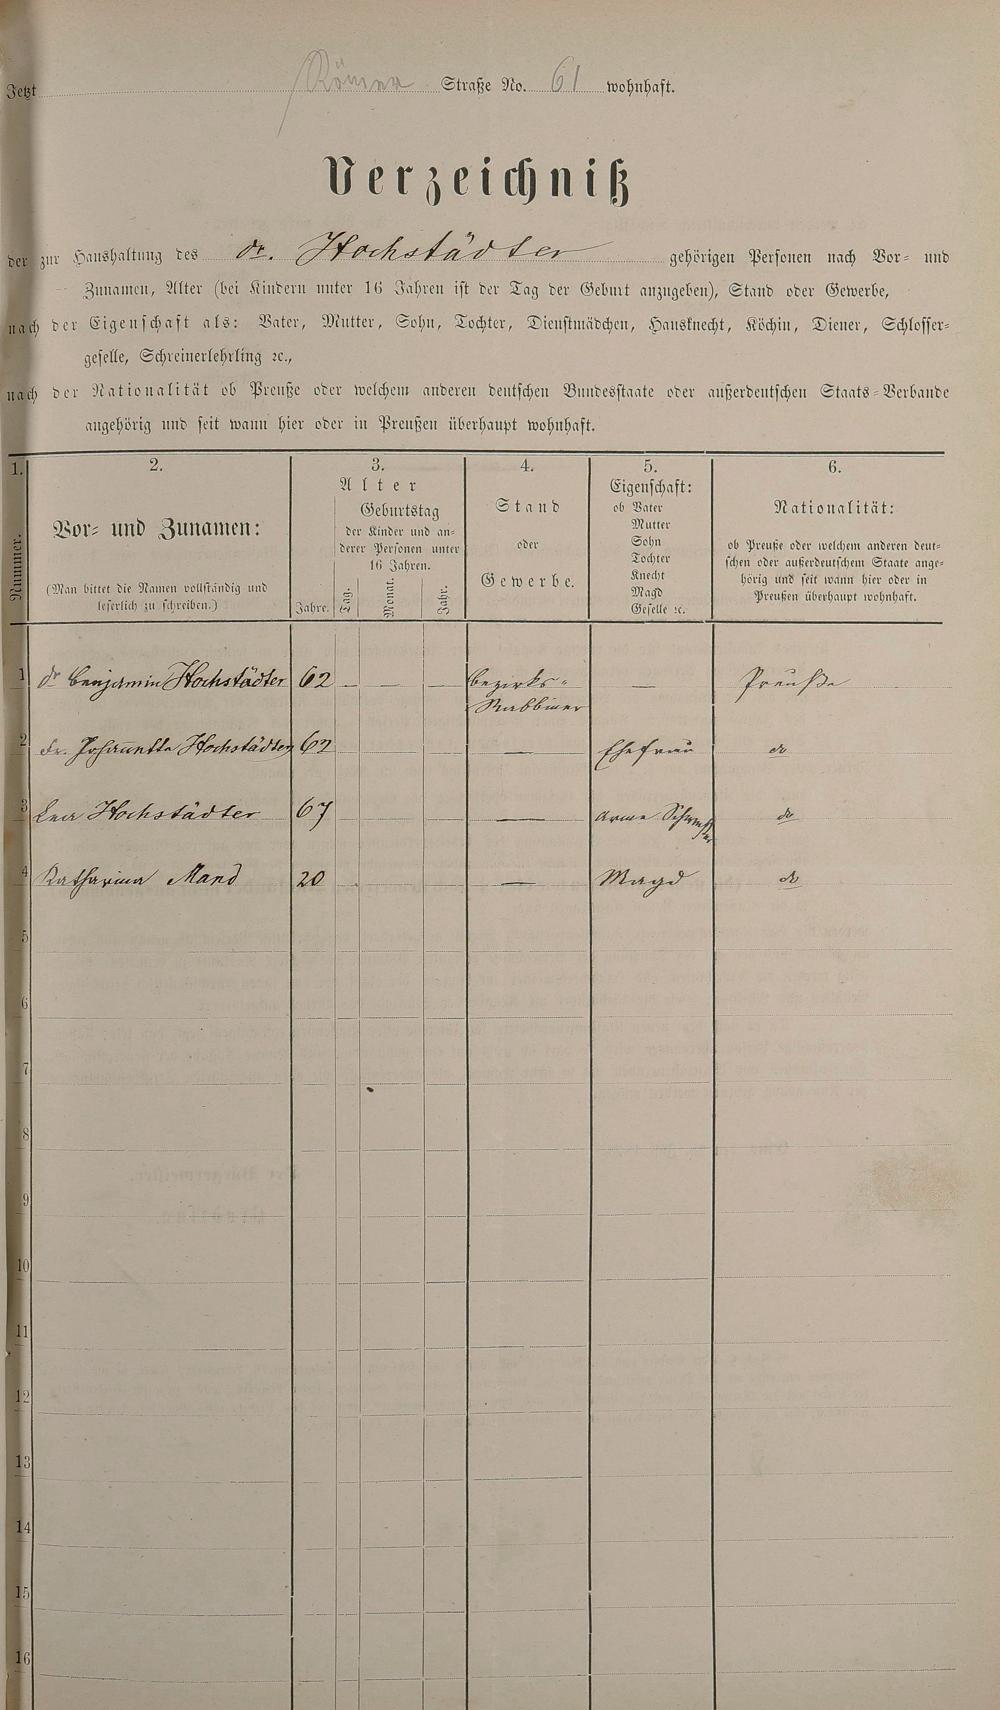 Jetzt Römer Straße No. 61 wohnhaft.
Verzeichniß
der zur Haushaltung des dr. Hochstädter gehörigen Personen nach Vor- und
Zunamen, Alter (bei Kindern unter 16 Jahren ist der Tag der Geburt anzugeben), Stand oder Gewerbe,
nach der Eigenschaft als: Vater, Mutter, Sohn, Tochter, Dienstmädchen, Hausknecht, Köchin, Diener, Schlosser-
geselle, Schreinerlehrling ꝛc.,
nach der Nationalität ob Preuße oder welchem anderen deutschen Bundesstaate oder außerdeutschen Staats-Verbande
angehörig und seit wann hier oder in Preußen überhaupt wohnhaft.
1. 2. 3. 4. 5. 6.
Nummer.
Vor- und Zunamen:
(Man bittet die Namen vollständig und
leserlich zu schreiben.)
Alter
Jahre.
Geburtstag
der Kinder und an-
derer Personen unter
16 Jahren.
Tag. Monat. Jahr.
Stand
oder
Gewerbe.
Eigenschaft:
ob Vater
Mutter
Sohn
Tochter
Knecht
Magd
Geselle ꝛc.
Nationalität:
ob Preuße oder welchem anderen deut-
schen oder außerdeutschem Staate ange-
hörig und seit wann hier oder in
Preußen überhaupt wohnhaft.
1 dr Benjamin Hochstädter 62 — — — Bezirks- — Preuße
Rabbiner
2 Fr. Johannetta Hochstädter 62 — Ehefrau do
3 Lea Hochstädter 67 — Arme Schwester do
4 Katharina Mand 20 — Magd do
5
6
7
8
9
10
11
12
13
14
15
16